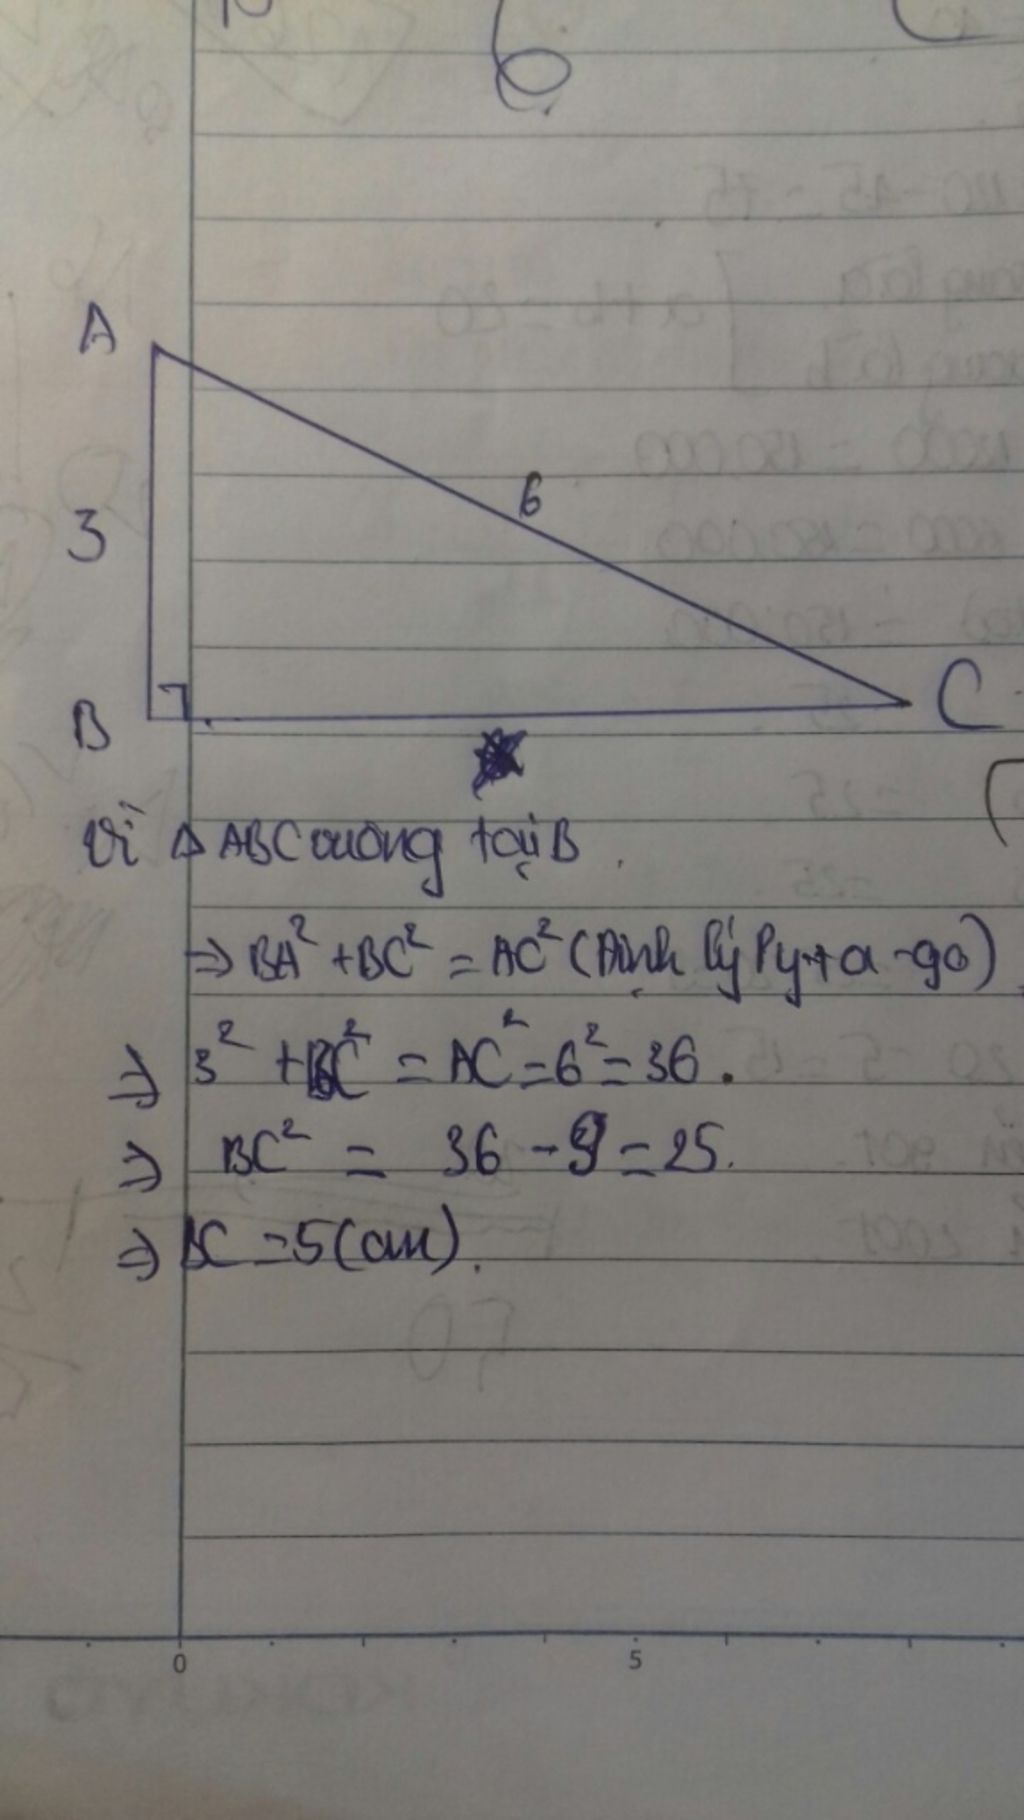 A
6
3
B
C
Vì Δ ABC vuông tại B.
=> BA² + BC² = AC² (Định lý Py-ta-go)
=> 3² + BC² = AC² = 6² = 36.
=> BC² = 36 - 9 = 25.
=> BC = 5 (cm).
0 5